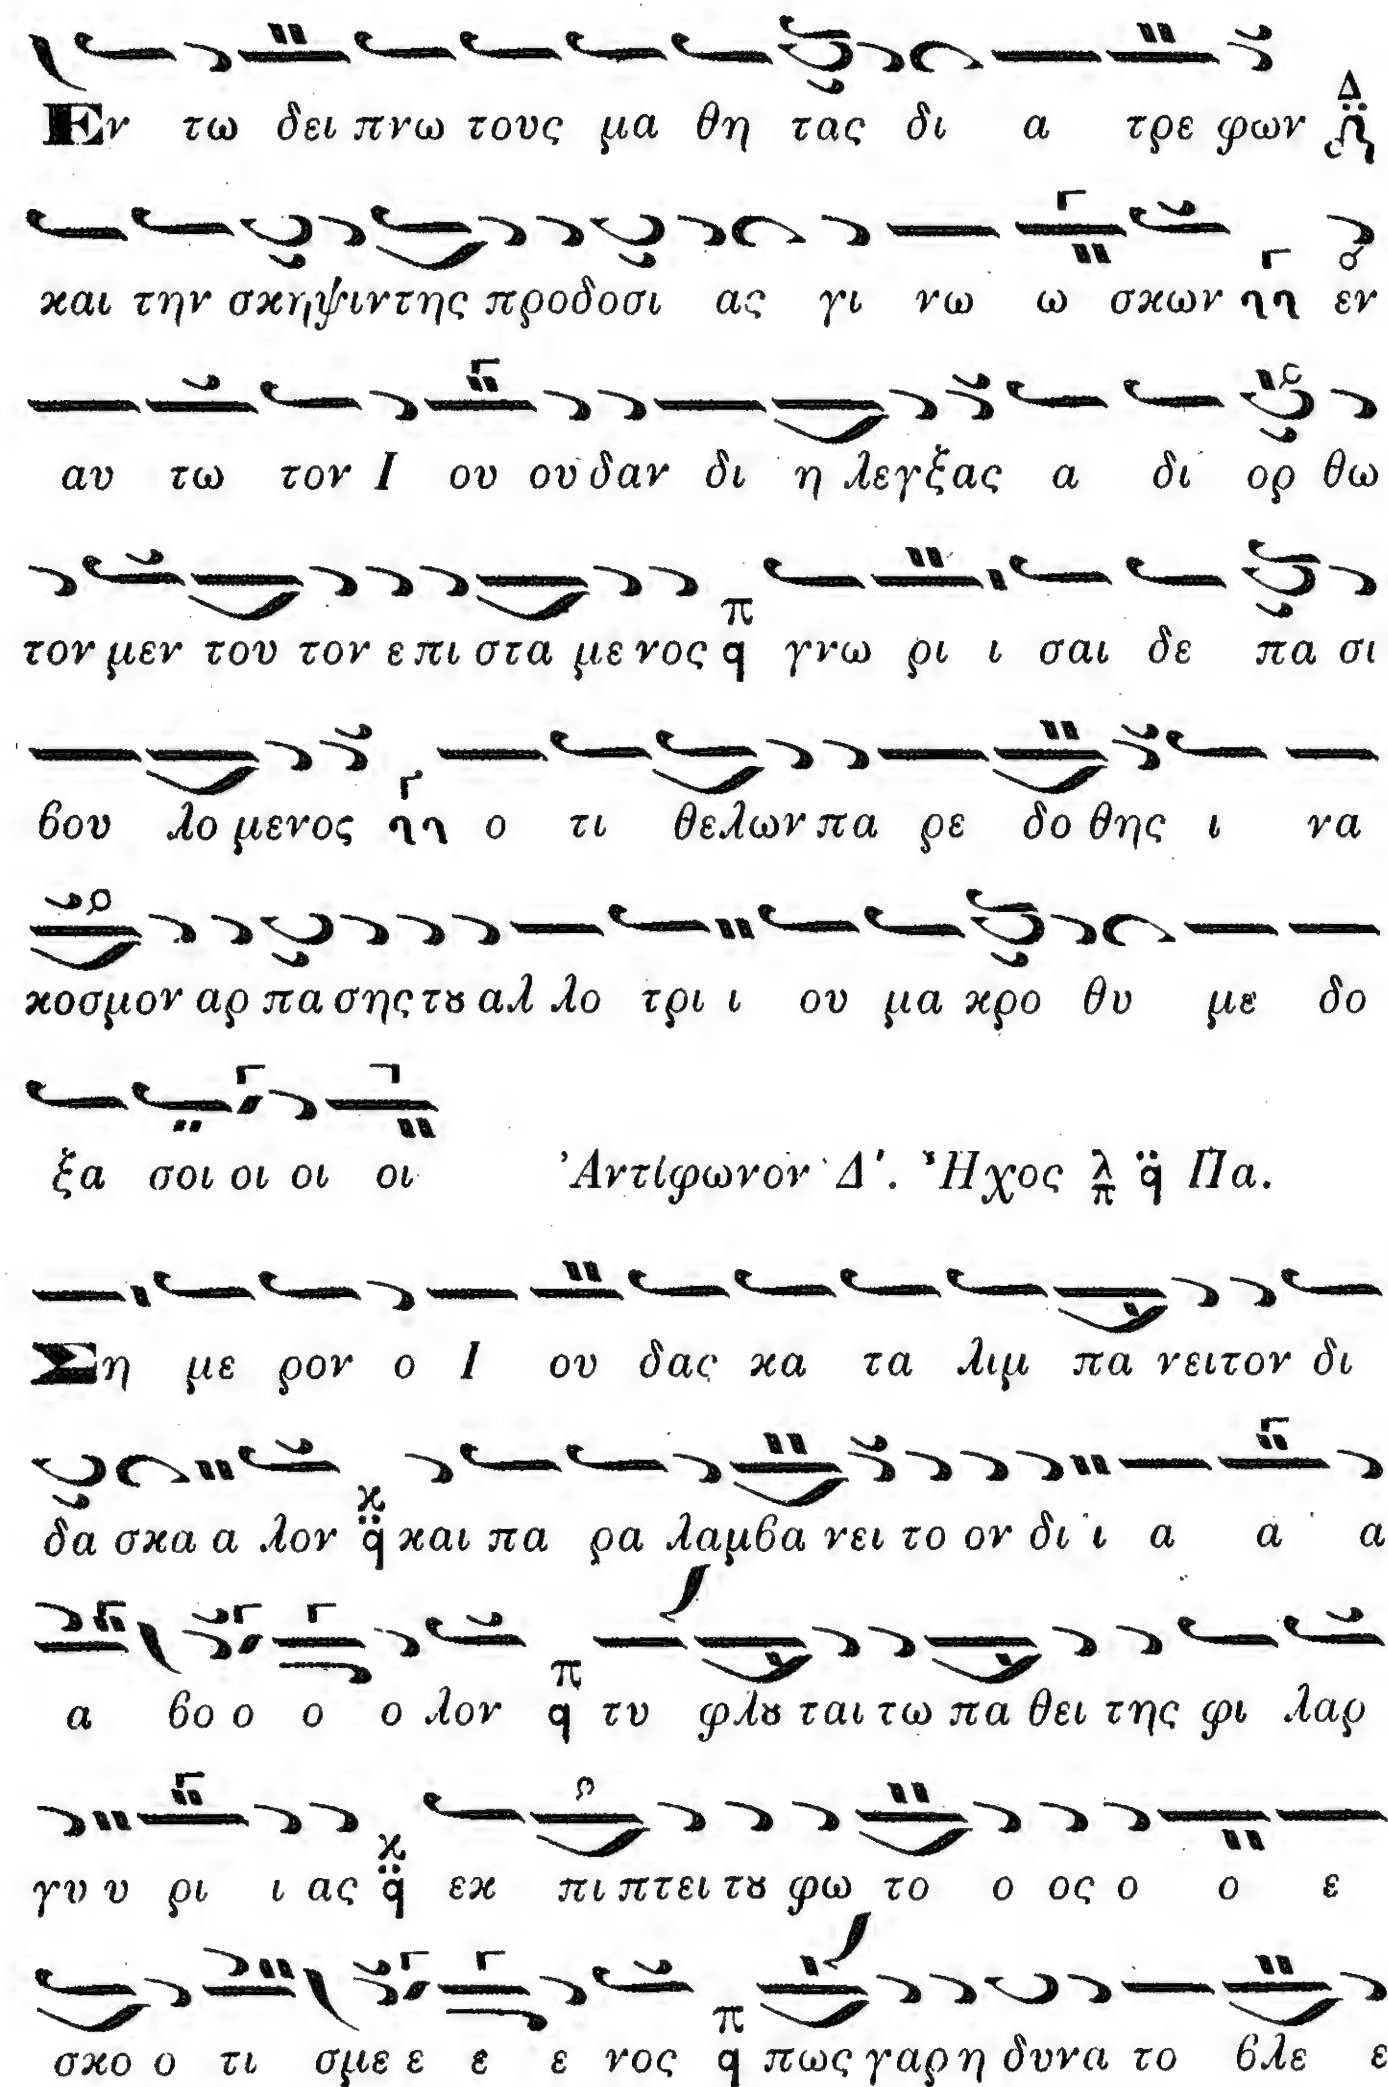 Εν τω δει πνω τους μα θη τας δι α τρε φων Δ
και την σκηψιντης προδοσι ας γι νω ω σκων Γ εν
αυ τω τον Ι ου ουδαν δι η λεγξας α δι ορ θω
τον μεν του τον ε πι στα με νος π q γνω ρι ι σαι δε πα σι
βου λο μενος Γ ο τι θελων πα ρε δο θης ι να
κοσμον αρ πα σης τȣ αλ λο τρι ι ου μα κρο θυ με δο
ξα σοι οι οι οι Ἀντίφωνον Δ′. Ἦχος λ π q̈ Πα.
Ση με ρον ο Ι ου δας κα τα λιμ πα νειτον δι
δα σκα α λον κ q̈ και πα ρα λαμβα νει το ον δι ι α α α
α βο ο ο ο λον π q τυ φλȣ ται τω πα θει της φι λαρ
γυ υ ρι ι ας κ q̈ εκ πι πτει τȣ φω το ο ος ο ο ε
σκο ο τι σμε ε ε ε νος π q πως γαρ η δυνα το βλε ε